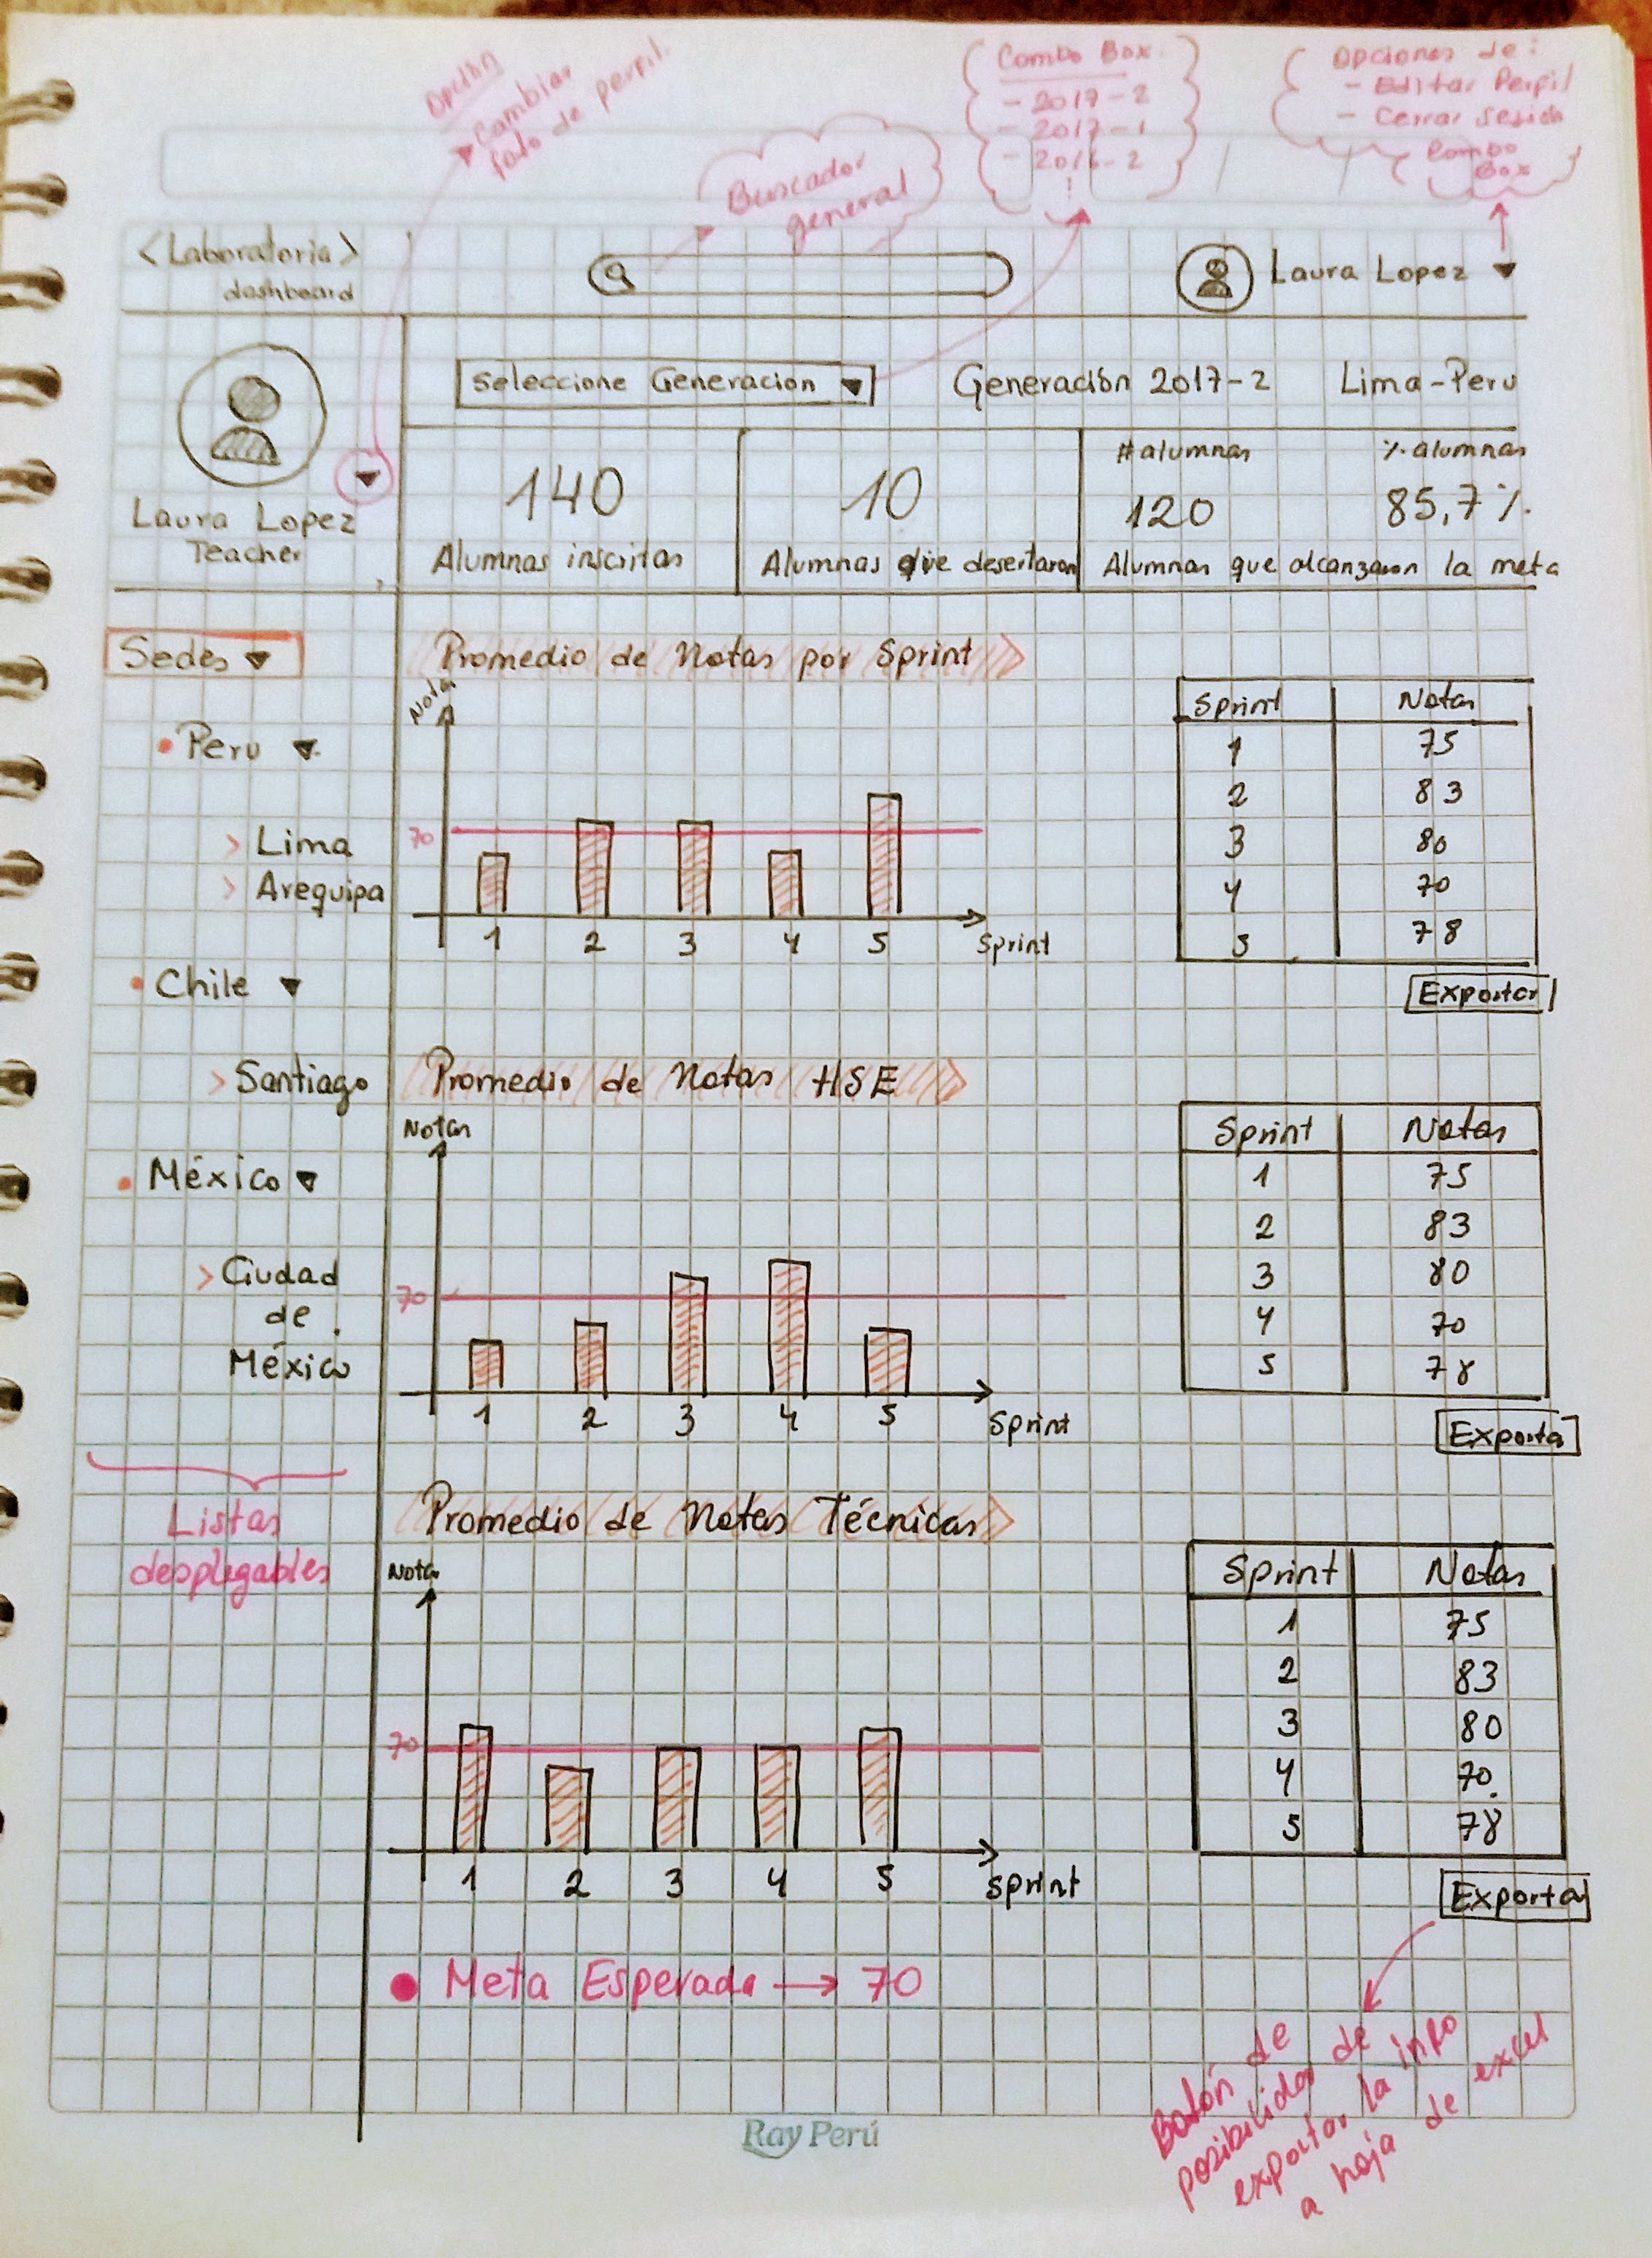 Opción
Cambiar
foto de perfil.
Combo Box.
- 2017-2
- 2017-1
- 2016-2
Opciones de:
- Editar Perfil
- Cerrar Sesión
Combo
Box
Buscador
general
<Laboratoria>
dashboard
Laura Lopez
Seleccione Generacion
Generación 2017-2
Lima-Peru
Laura Lopez
Teacher
140
Alumnas inscritas
10
Alumnas que desertaron
#alumnas
%alumnas
120
85,7%
Alumnas que alcanzaron la meta
Sedes
• Peru
> Lima
> Arequipa
• Chile
> Santiago
• México
> Ciudad
de
México
Listas
desplegables
Promedio de Notas por Sprint
Notas
70
1 2 3 4 5 Sprint
Sprint Notas
1 75
2 83
3 80
4 70
5 78
Exportar
Promedio de Notas HSE
Notas
70
1 2 3 4 5 Sprint
Sprint Notas
1 75
2 83
3 80
4 70
5 78
Exporta
Promedio de Notas Técnicas
Notas
70
1 2 3 4 5 Sprint
Sprint Notas
1 75
2 83
3 80
4 70
5 78
Exportar
• Meta Esperada → 70
Botón de
posibilidad de
exportar la info
a hoja de excel
Ray Perú